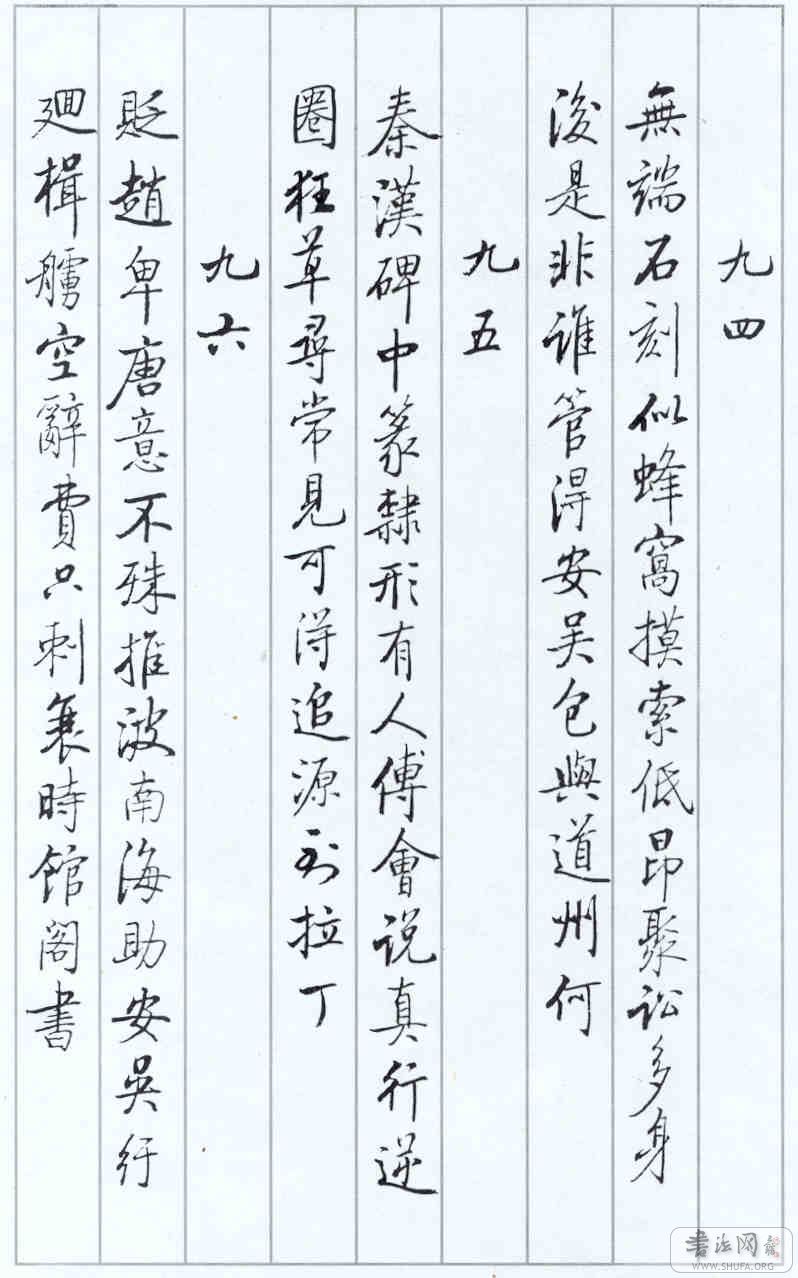 九四
無端石刻似蜂窩摸索低昂聚訟多身
後是非誰管得安吳包與道州何
九五
秦漢碑中篆隸形有人傅會說真行逆
圈狂草尋常見可得追源到拉丁
九六
貶趙卑唐意不殊推波南海助安吳紆
廻楫艣空辭費只刺衰時館閣書
書法网
WWW.SHUFA.ORG